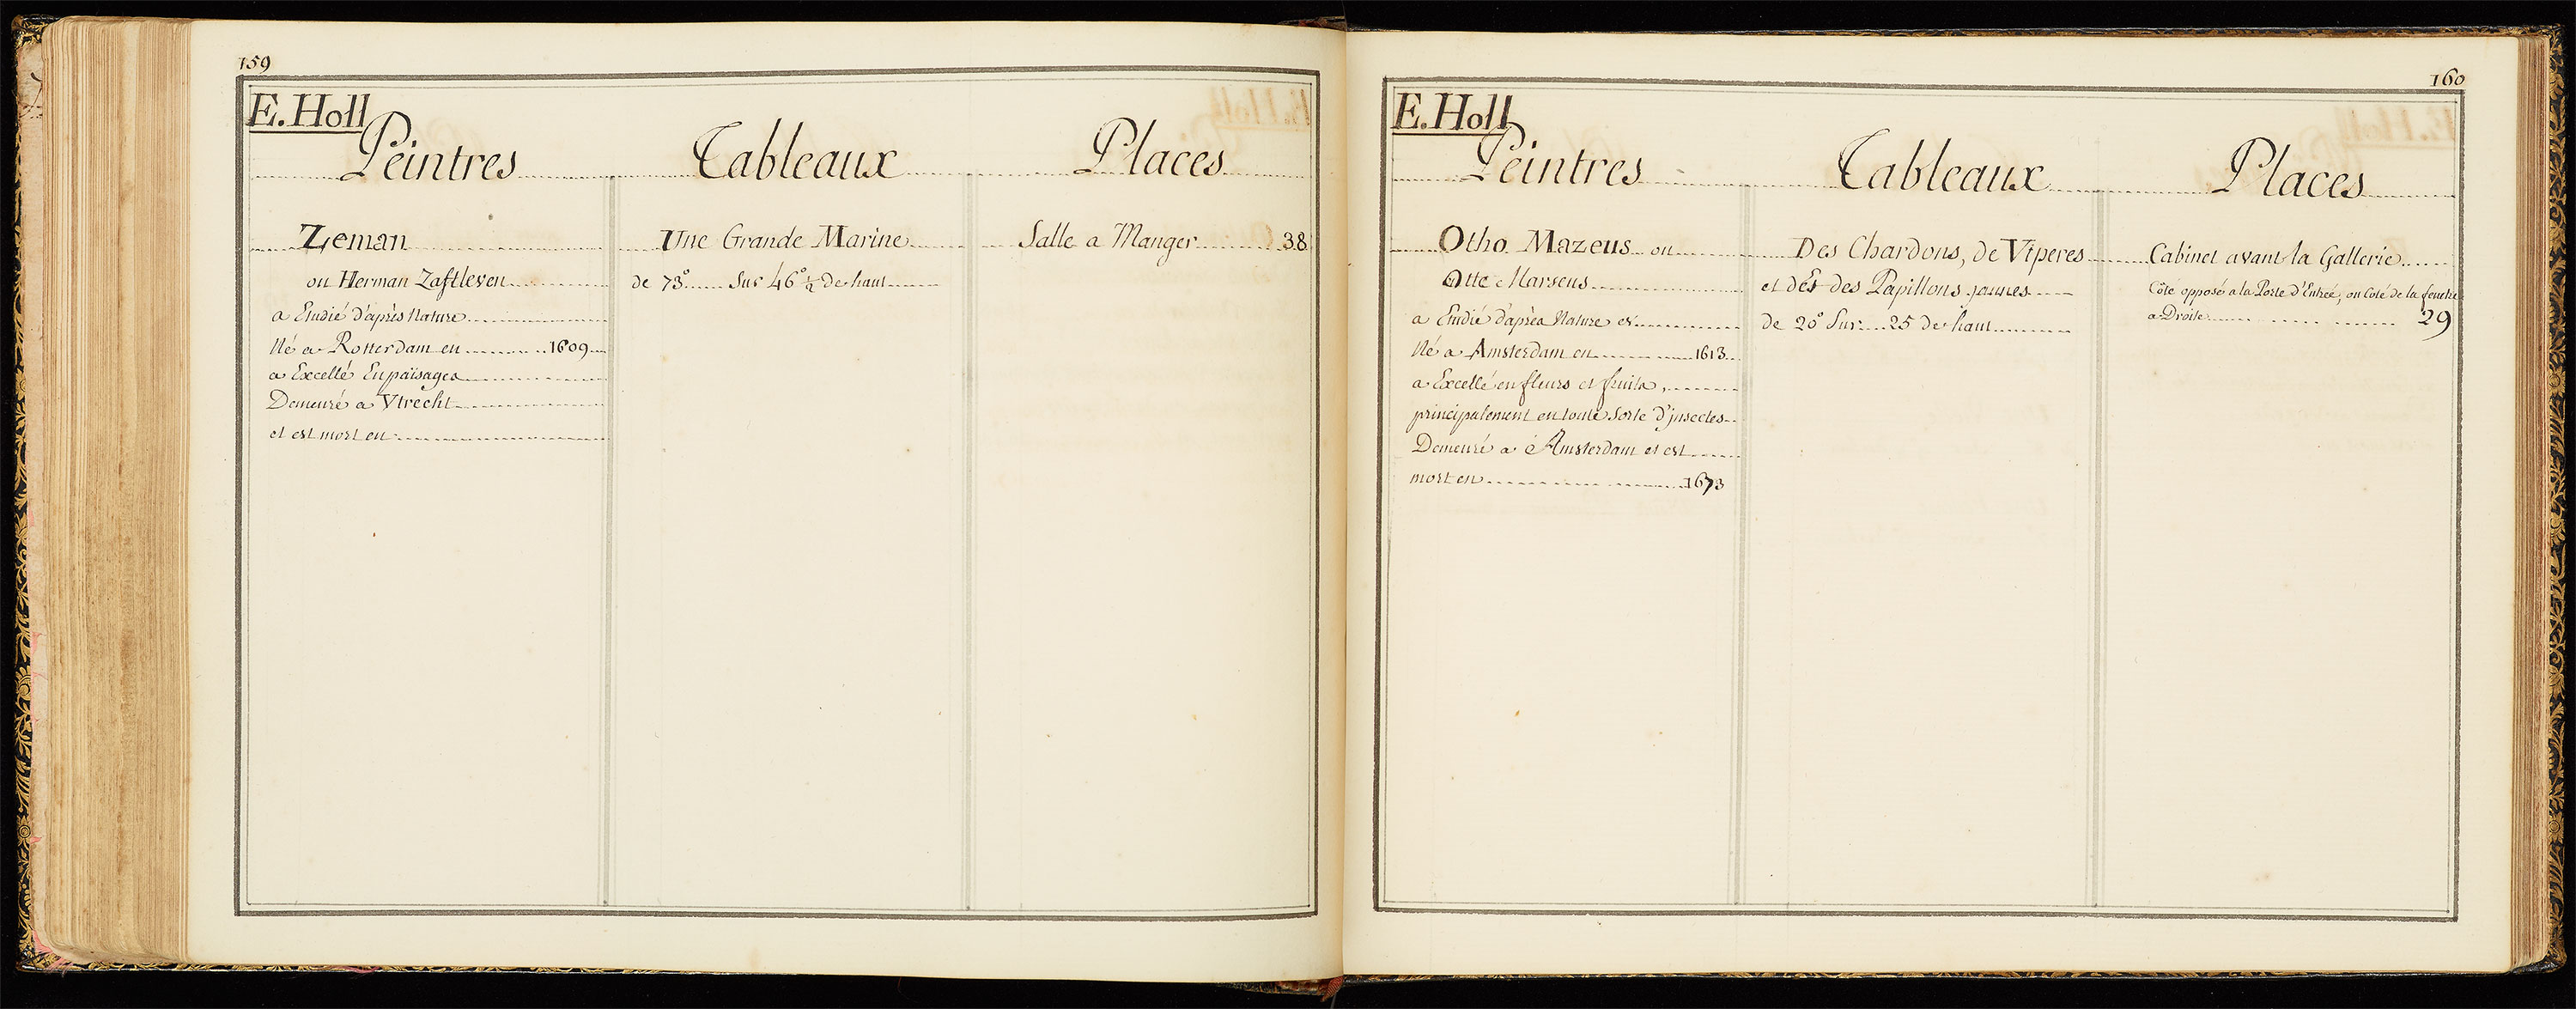 159
E. Holl
Peintres Tableaux Places
Zeman
ou Herman Zaftleven
a Etudié d'après Nature
Né a Rotterdam en 1609
a Excellé En païsages
Demeuré a Vtrecht
et est mort en
Une Grande Marine
de 73° Sur 46° 1/2 de haut
Salle a Manger 38
160
E. Holl
Peintres Tableaux Places
Otho Mazeus ou
Otte Marseus
a Etudié d'après Nature et
Né a Amsterdam en 1613
a Excellé en fleurs et fruits,
principalement en toute Sorte d'jnsectes
Demeuré a Amsterdam et est
mort en 1673
Des Chardons, de Viperes
et des Papillons jaunes
de 20° Sur 25 de haut
Cabinet avant la Gallerie
Côté opposé a la Porte d'Entreé, ou Coté de la fenetre
a Droite 29